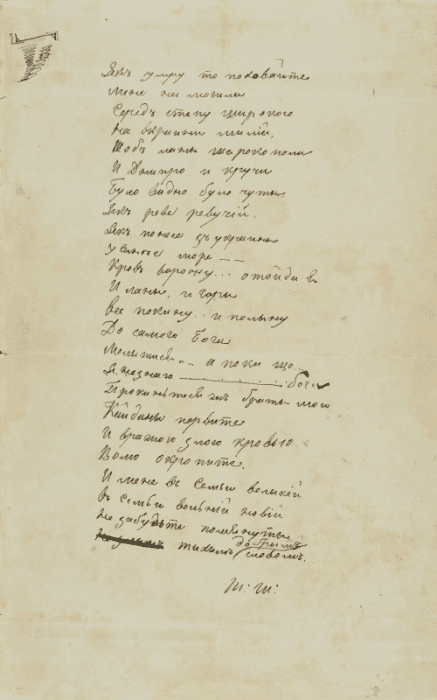 Якъ умру то поховайте
Мене на могили
Середъ степу широкого
На вкраини милій,
Щобъ ланы широкополи
И Днипро и кручи
Було видно було чуты
Якъ реве ревучій.
Якъ понесе зъ украины
У синье море --
Кровъ ворожу... отойди я
И ланы, и горы
все покину.. и полыну
До самого Бога
Молытыся.. а поки що..
Я незнаю бога
кайданы порвите
И вражою злою кровью
Волю окропите.
И мене въ семьи великій
въ семьи вольний новій
Не забудьте помьянуты
тихимъ словомъ.
добрымъ
Т: Ш: